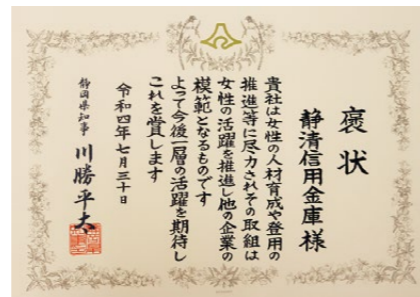 褒状
静清信用金庫様
貴社は女性の人材育成や登用の
推進等に尽力されその取組は
女性の活躍を推進し他の企業の
模範となるものです
よって今後一層の活躍を期待し
これを賞します
令和四年七月三十日
静岡県知事 川勝平太